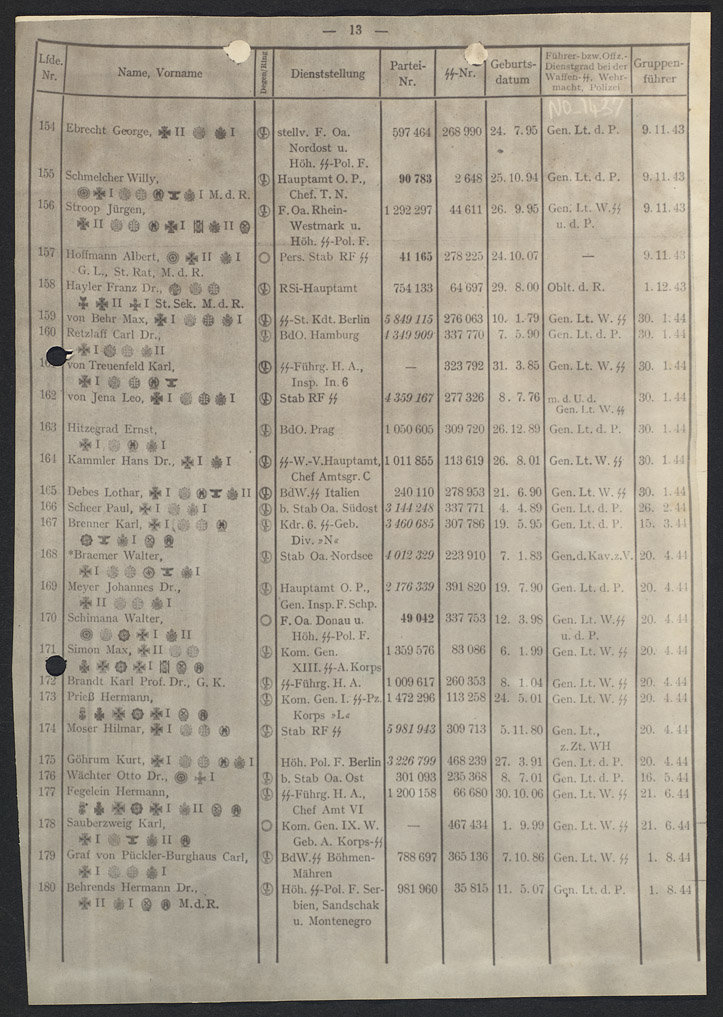 — 13 —
Lfde. Nr. Name, Vorname Degen/Ring Dienststellung Partei-Nr. ᛋᛋ-Nr. Geburts-datum Führer- bzw. Offz.-Dienstgrad bei der Waffen-ᛋᛋ, Wehr-macht, Polizei Gruppen-führer
NO. 1439
154 Ebrecht George, II I stellv. F. Oa. 597 464 268 990 24. 7. 95 Gen. Lt. d. P. 9. 11. 43
Nordost u.
Höh. ᛋᛋ-Pol. F.
155 Schmelcher Willy, Hauptamt O. P., 90 783 2 648 25. 10. 94 Gen. Lt. d. P. 9. 11. 43
I I M. d. R. Chef. T. N.
156 Stroop Jürgen, F. Oa. Rhein- 1 292 297 44 611 26. 9. 95 Gen. Lt. W. ᛋᛋ 9. 11. 43
II I II Westmark u. u. d. P.
Höh. ᛋᛋ-Pol. F.
157 Hoffmann Albert, II I Pers. Stab RF ᛋᛋ 41 165 278 225 24. 10. 07 — 9. 11. 43
G. L., St. Rat, M. d. R.
158 Hayler Franz Dr., RSi-Hauptamt 754 133 64 697 29. 8. 00 Oblt. d. R. 1. 12. 43
II I St. Sek. M. d. R.
159 von Behr Max, I I ᛋᛋ-St. Kdt. Berlin 5 849 115 276 063 10. 1. 79 Gen. Lt. W. ᛋᛋ 30. 1. 44
160 Retzlaff Carl Dr., BdO. Hamburg 4 349 909 337 770 7. 5. 90 Gen. Lt. d. P. 30. 1. 44
I II
von Treuenfeld Karl, ᛋᛋ-Führg. H. A., — 323 792 31. 3. 85 Gen. Lt. W. ᛋᛋ 30. 1. 44
I Insp. In. 6
162 von Jena Leo, I I Stab RF ᛋᛋ 4 359 167 277 326 8. 7. 76 m. d. U. d. 30. 1. 44
Gen. Lt. W. ᛋᛋ
163 Hitzegrad Ernst, BdO. Prag 1 050 605 309 720 26. 12. 89 Gen. Lt. d. P. 30. 1. 44
I I
164 Kammler Hans Dr., I I ᛋᛋ-W.-V.Hauptamt, 1 011 855 113 619 26. 8. 01 Gen. Lt. W. ᛋᛋ 30. 1. 44
Chef Amtsgr. C
165 Debes Lothar, I II BdW. ᛋᛋ Italien 240 110 278 953 21. 6. 90 Gen. Lt. W. ᛋᛋ 30. 1. 44
166 Scheer Paul, I I b. Stab Oa. Südost 3 144 248 337 771 4. 4. 89 Gen. Lt. d. P. 26. 2. 44
167 Brenner Karl, I Kdr. 6. ᛋᛋ-Geb. 3 460 685 307 786 19. 5. 95 Gen. Lt. d. P. 15. 3. 44
I Div. »N«
168 *Braemer Walter, Stab Oa. Nordsee 4 012 329 223 910 7. 1. 83 Gen. d. Kav. z. V. 20. 4. 44
I I
169 Meyer Johannes Dr., Hauptamt O. P., 2 176 339 391 820 19. 7. 90 Gen. Lt. d. P. 20. 4. 44
II I Gen. Insp. F. Schp.
170 Schimana Walter, F. Oa. Donau u. 49 042 337 753 12. 3. 98 Gen. Lt. W. ᛋᛋ 20. 4. 44
I II Höh. ᛋᛋ-Pol. F. u. d. P.
171 Simon Max, II Kom. Gen. 1 359 576 83 086 6. 1. 99 Gen. Lt. W. ᛋᛋ 20. 4. 44
I XIII. ᛋᛋ-A. Korps
172 Brandt Karl Prof. Dr., G. K. ᛋᛋ-Führg. H. A. 1 009 617 260 353 8. 1. 04 Gen. Lt. W. ᛋᛋ 20. 4. 44
173 Prieß Hermann, Kom. Gen. I. ᛋᛋ-Pz. 1 472 296 113 258 24. 5. 01 Gen. Lt. W. ᛋᛋ 20. 4. 44
I Korps »L«
174 Moser Hilmar, I Stab RF ᛋᛋ 5 981 943 309 713 5. 11. 80 Gen. Lt., 20. 4. 44
z. Zt. WH
175 Göhrum Kurt, I I Höh. Pol. F. Berlin 3 226 799 468 239 27. 3. 91 Gen. Lt. d. P. 20. 4. 44
176 Wächter Otto Dr., I b. Stab Oa. Ost 301 093 235 368 8. 7. 01 Gen. Lt. d. P. 16. 5. 44
177 Fegelein Hermann, ᛋᛋ-Führg. H. A., 1 200 158 66 680 30. 10. 06 Gen. Lt. W. ᛋᛋ 21. 6. 44
I II Chef Amt VI
178 Sauberzweig Karl, Kom. Gen. IX. W. — 467 434 1. 9. 99 Gen. Lt. W. ᛋᛋ 21. 6. 44
I II Geb. A. Korps-ᛋᛋ
179 Graf von Pückler-Burghaus Carl, BdW. ᛋᛋ Böhmen- 788 697 365 136 7. 10. 86 Gen. Lt. W. ᛋᛋ 1. 8. 44
I I Mähren
180 Behrends Hermann Dr., Höh. ᛋᛋ-Pol. F. Ser- 981 960 35 815 11. 5. 07 Gen. Lt. d. P. 1. 8. 44
II I M.d.R. bien, Sandschak
u. Montenegro